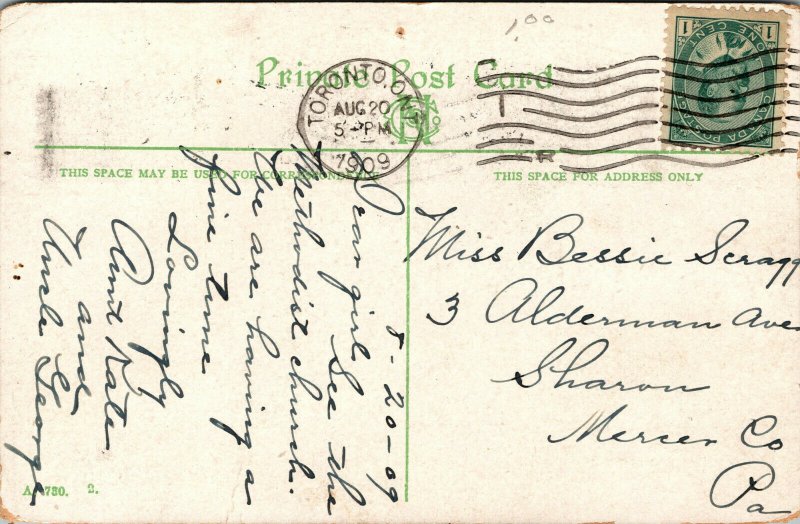 1.00
Private Post Card
TORONTO, ONT.
AUG 20
5 - PM
1909
1 1
ONE CENT
CANADA POSTAGE
THIS SPACE MAY BE USED FOR CORRESPONDENCE
THIS SPACE FOR ADDRESS ONLY
8-20-09
Dear girl See the
Methodist church.
We are having a
fine time
Lovingly
Aunt Kate
and
Uncle George
Miss Bessie Scragg
3 Alderman Ave
Sharon
Mercer Co
Pa
A. 730. 2.